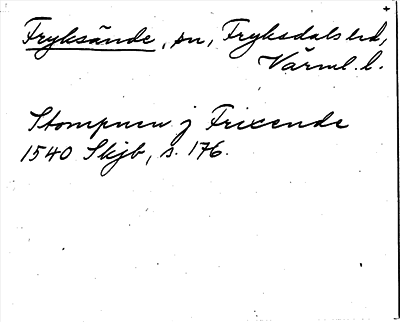 Fryksände, sn, Fryksdals hd,
Värml. l.
Stompnen j Frixende
1540 Skjb, s. 176.